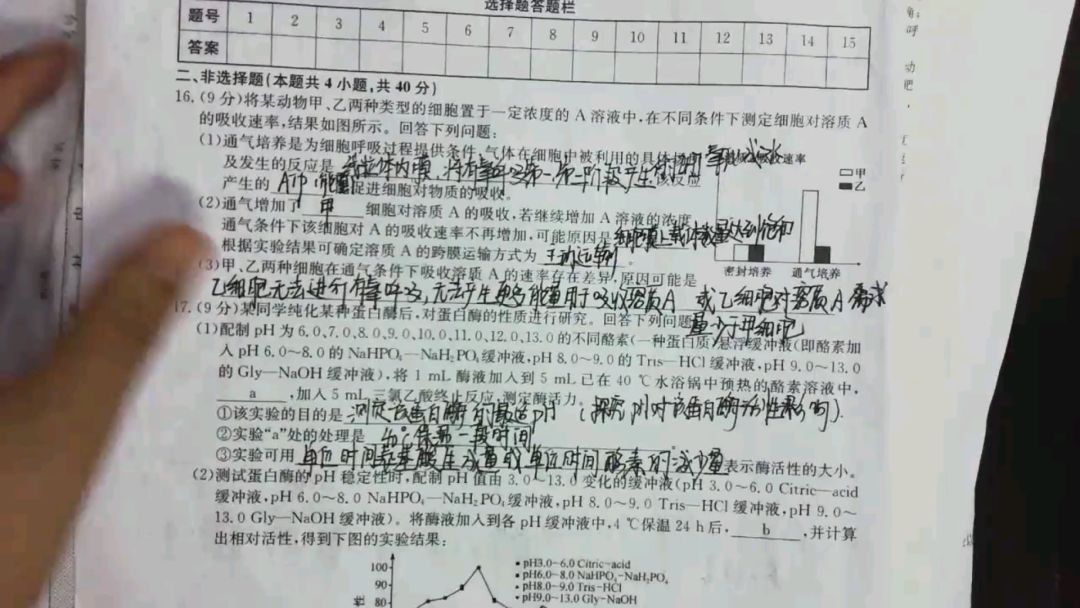 选择题答题栏
题号 1 2 3 4 5 6 7 8 9 10 11 12 13 14 15
答案
二、非选择题(本题共4小题,共40分)
16.(9分)将某动物甲、乙两种类型的细胞置于一定浓度的A溶液中,在不同条件下测定细胞对溶质A
的吸收速率,结果如图所示。回答下列问题:
(1)通气培养是为细胞呼吸过程提供条件,气体在细胞中被利用的具体场所
及发生的反应是 线粒体内膜,将有氧呼吸第一、第二阶段产生的 该反应
产生的 ATP(能量) 促进细胞对物质的吸收。
吸收速率
甲
乙
(2)通气增加了 甲 细胞对溶质A的吸收,若继续增加A溶液的浓度,
通气条件下该细胞对A的吸收速率不再增加,可能原因是 细胞膜上载体数量达到饱和
根据实验结果可确定溶质A的跨膜运输方式为 主动运输 。
密封培养 通气培养
(3)甲、乙两种细胞在通气条件下吸收溶质A的速率存在差异,原因可能是
乙细胞无法进行有氧呼吸,无法产生更多能量用于吸收溶质A 或乙细胞对溶质A需求
量少于甲细胞
17.(9分)某同学纯化某种蛋白酶后,对蛋白酶的性质进行研究。回答下列问题
(1)配制pH为6.0,7.0,8.0,9.0,10.0,11.0,12.0,13.0的不同酪素(一种蛋白质)悬浮缓冲液(即酪素加
入pH 6.0~8.0的NaHPO₄—NaH₂PO₄缓冲液,pH 8.0~9.0的Tris—HCl缓冲液,pH 9.0~13.0
的Gly—NaOH缓冲液),将1 mL酶液加入到5 mL已在40 ℃水浴锅中预热的酪素溶液中,
a ,加入5 mL三氯乙酸终止反应,测定酶活力。
①该实验的目的是 测定该蛋白酶的最适pH (探究pH对该蛋白酶活性影响).
②实验“a”处的处理是 40° 保温一段时间
③实验可用 单位时间氨基酸生成量或单位时间酪素的减少量 表示酶活性的大小。
(2)测试蛋白酶的pH稳定性时,配制pH值由3.0~13.0变化的缓冲液(pH 3.0~6.0 Citric—acid
缓冲液,pH 6.0~8.0 NaHPO₄—NaH₂PO₄缓冲液,pH 8.0~9.0 Tris—HCl缓冲液,pH 9.0~
13.0 Gly—NaOH缓冲液)。将酶液加入到各pH缓冲液中,4 ℃保温24 h后, b ,并计算
出相对活性,得到下图的实验结果:
100
90
80
pH3.0~6.0 Citric-acid
pH6.0~8.0 NaHPO₄-NaH₂PO₄
pH8.0~9.0 Tris-HCl
pH9.0~13.0 Gly-NaOH